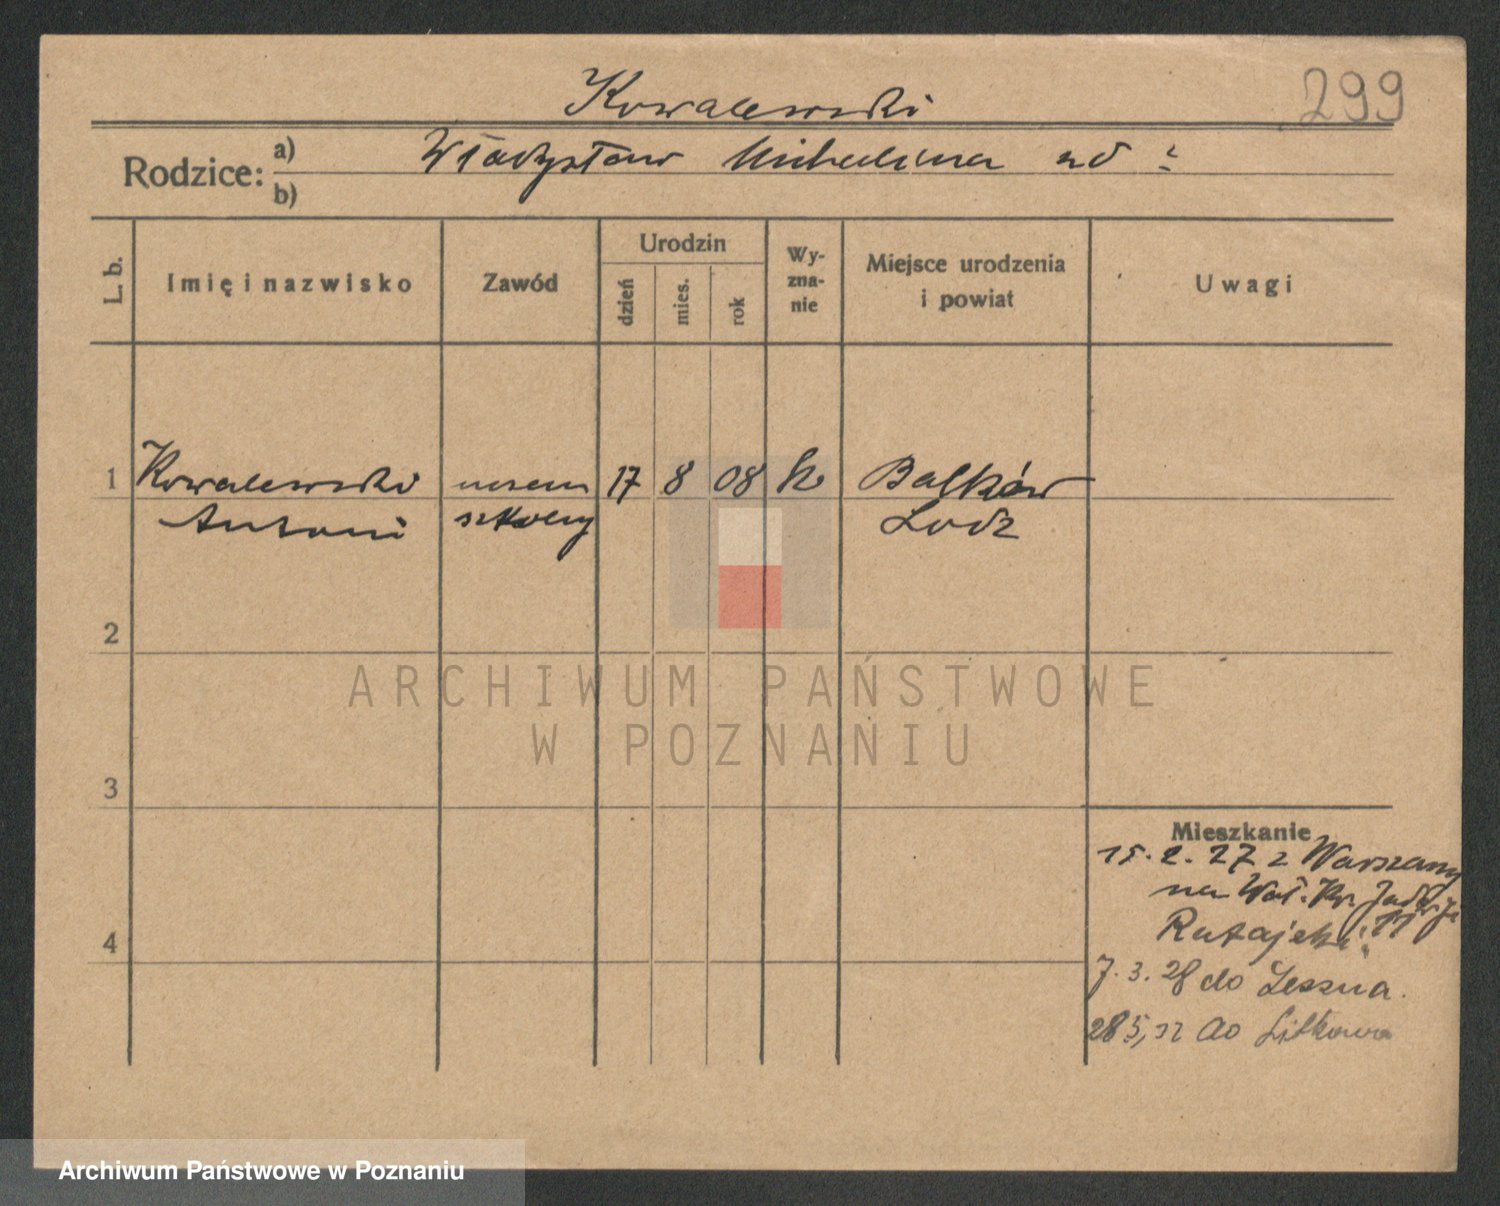 Kowalewski
299
Rodzice:
a) Władysław Michalina
b)
L. b.
Imię i nazwisko
Zawód
Urodzin
dzień
mies.
rok
Wy-
zna-
nie
Miejsce urodzenia
i powiat
Uwagi
1
Kowalewski
Antoni
uczeń
szkolny
17
8
08
k
Bałków
Lodz
2
3
4
Mieszkanie
27 z Warszawy
na Wał. Kr. Jadwigi
Ratajski
7. 3. 28 do Leszna.
28 5, 32 do
ARCHIWUM PAŃSTWOWE
W POZNANIU
Archiwum Państwowe w Poznaniu